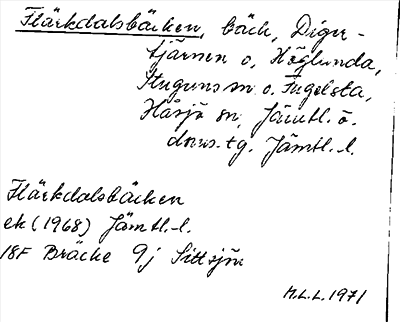 Flärkdalsbäcken, bäck, Diger-
tjärnen o. Höglunda,
Stuguns sn o. Fugelsta,
Håsjö sn, Jämtl. ö.
doms.tg. Jämtl. l.
Flärkdalsbäcken
ek (1968) Jämtl. l.
18F Bräcke 9j Sittsjön
M.L.L. 1971